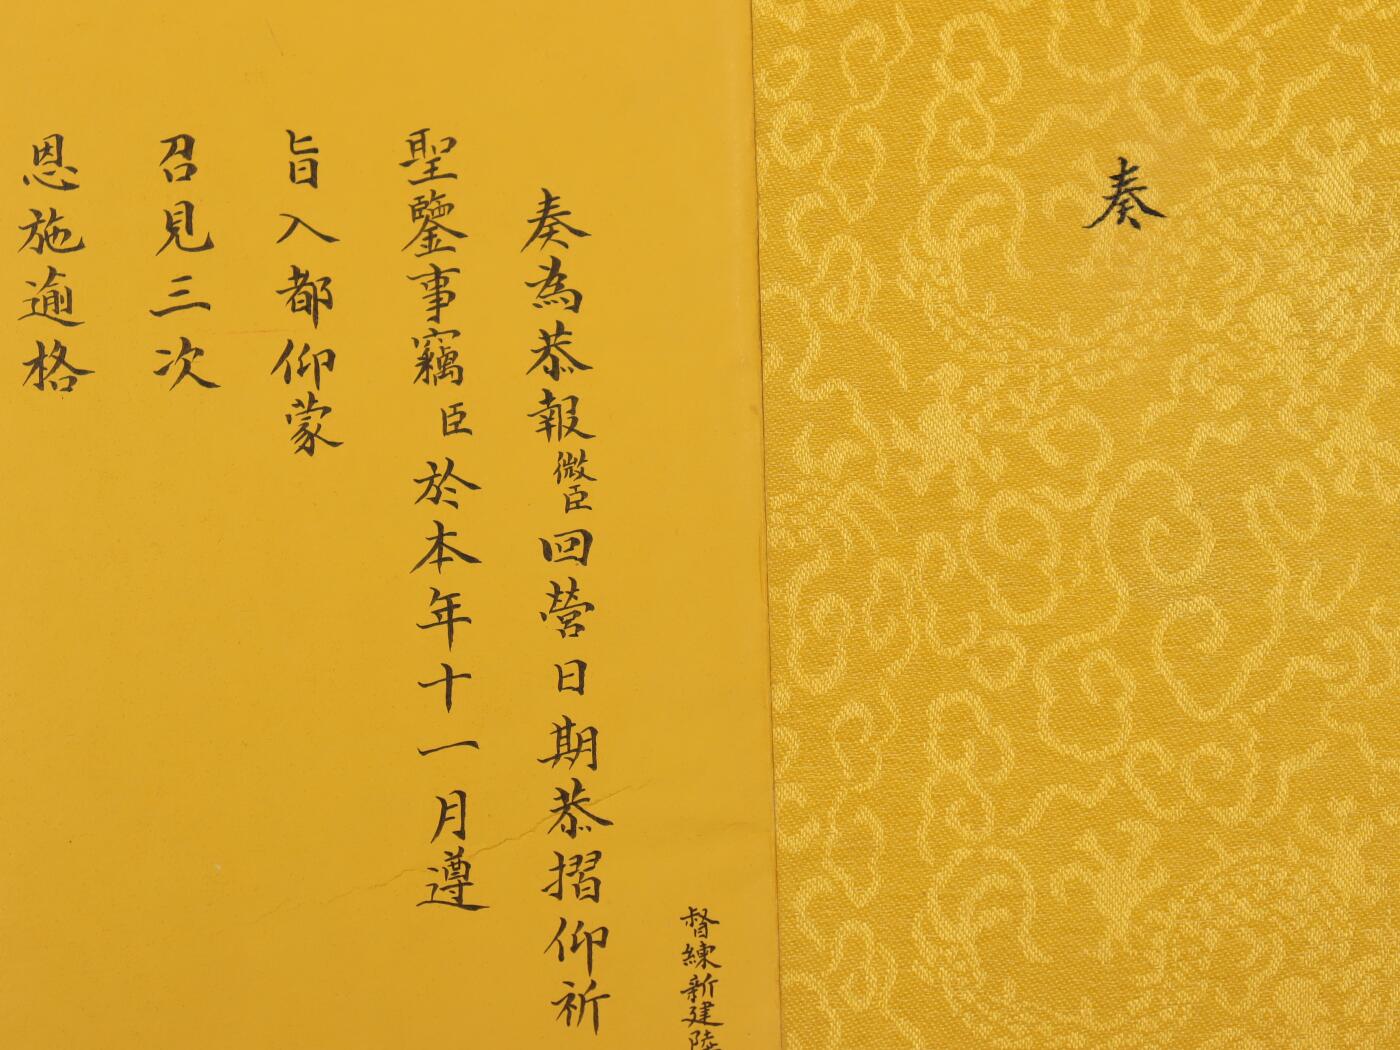 奏
督練新建陸
奏為恭報微臣回營日期恭摺仰祈
聖鑒事竊臣於本年十一月遵
旨入都仰蒙
召見三次
恩施逾格